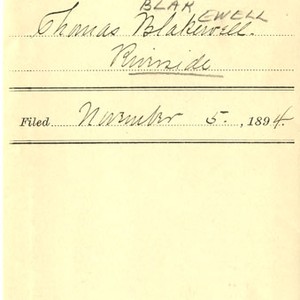 BLAK EWELL
Thomas Blakewell.
Riverside
Filed November 5. , 1894.